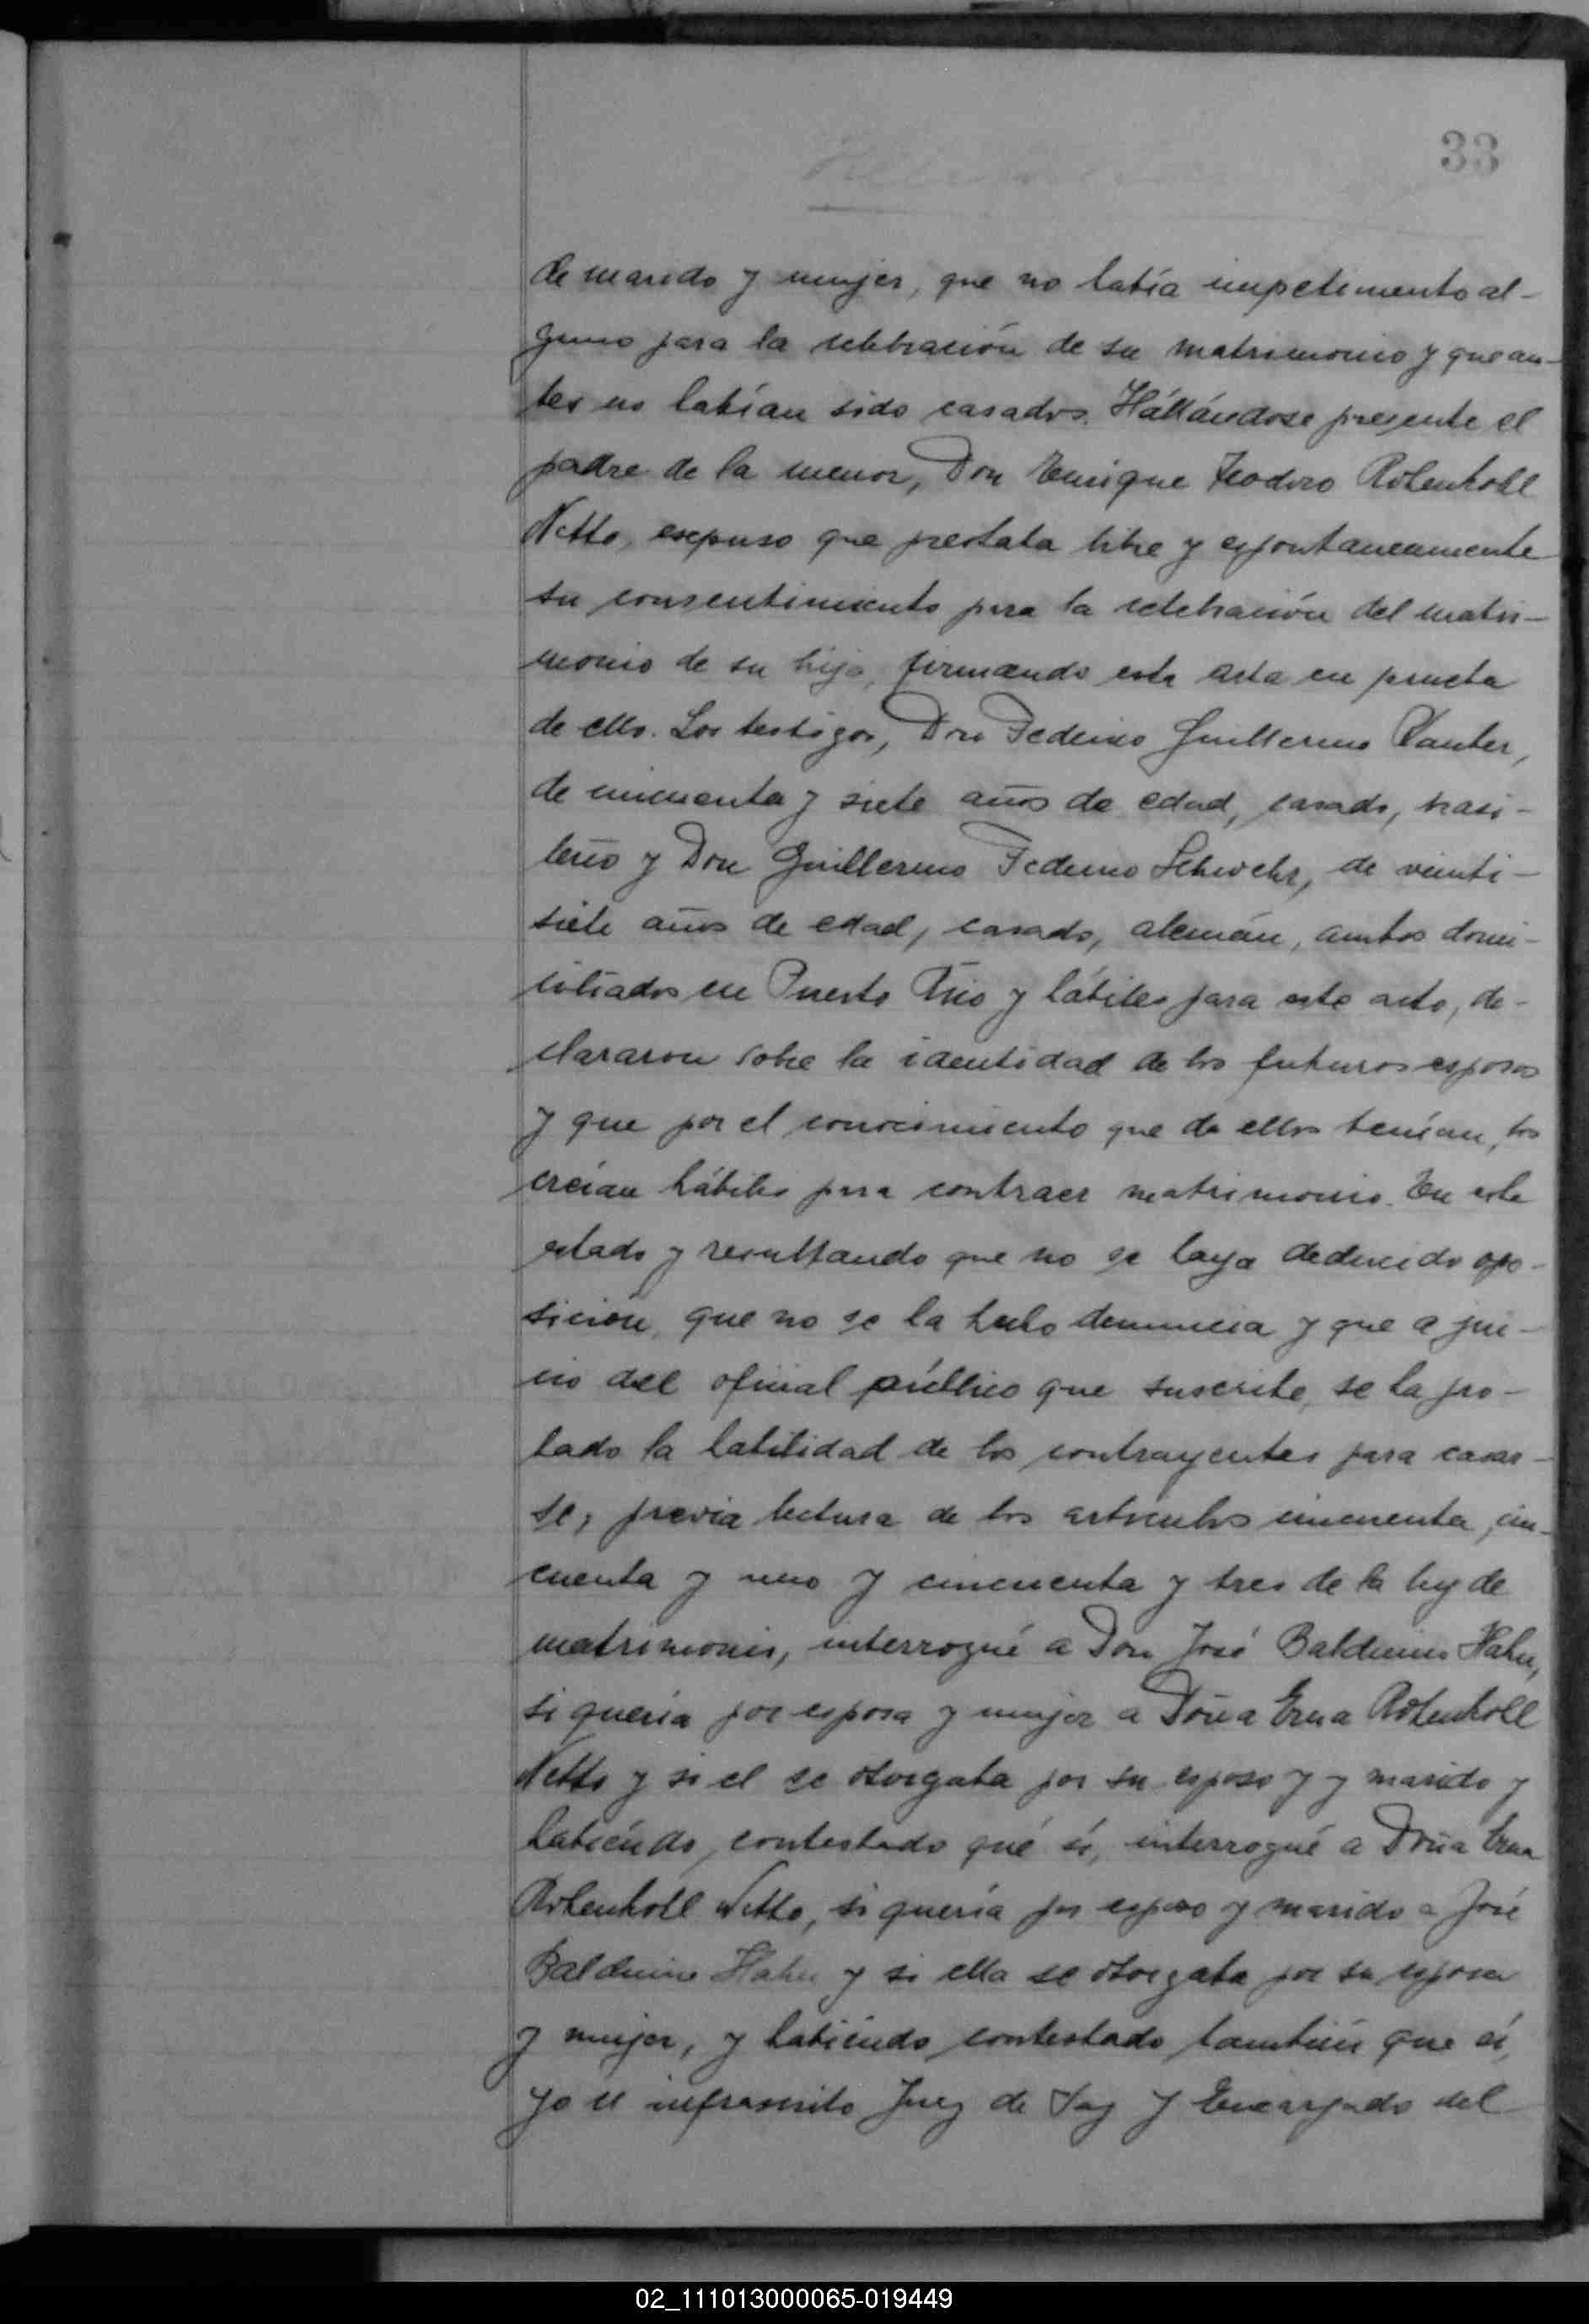 33
de marido y mujer, que no había impedimento al-
guno para la celebración de su matrimonio y que an-
tes no habían sido casados. Hállándose presente el
padre de la menor, Don Enrique Teodoro Rotenkoll
Netto, expuso que prestaba libre y espontaneamente
su consentimiento para la celebración del matri-
monio de su hija, firmando esta acta en prueba
de ello. Los testigos, Don Federico Guillermo Kanter,
de cincuenta y siete años de edad, casado, brasi-
leño y Don Guillermo Federico Schwehr, de veinti-
siete años de edad, casado, alemán, ambos domi-
ciliados en Puerto Rico y hábiles para este acto, de-
clararon sobre la identidad de los futuros esposos
y que por el conocimiento que de ellos tenían, los
creían hábiles para contraer matrimonio. En este
estado y resultando que no se haya deducido opo-
sición, que no se ha hecho denuncia y que a jui-
cio del oficial público que suscribe, se ha pro-
bado la habilidad de los contrayentes para casar-
se, previa lectura de los artículos cincuenta, cin-
cuenta y uno y cincuenta y tres de la ley de
matrimonio, interrogué a Don José Balduino Hahn,
si quería por esposa y mujer a Doña Erna Rotenkoll
Netto y si el se otorgaba por su esposo y y marido y
habiéndo contestado qué sí, interrogué a Doña Erna
Rotenkoll Netto, si quería por esposo y marido a José
Balduino Hahn y si ella se otorgaba por su esposa
y mujer, y habiéndo contestado también que sí,
yo el infrascrito Juez de Paz y Encargado del
02_111013000065-019449